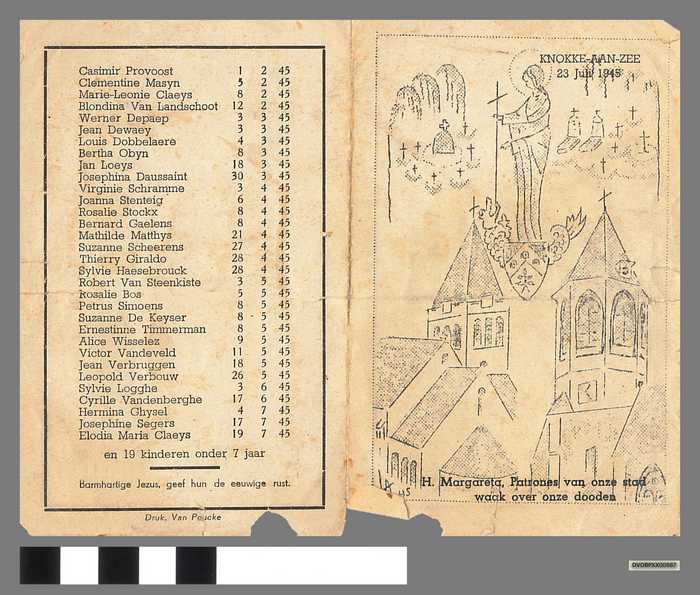 Casimir Provoost 1 2 45
Clementine Masyn 5 2 45
Marie-Leonie Claeys 8 2 45
Blondina Van Landschoot 12 2 45
Werner Depaep 3 3 45
Jean Dewaey 3 3 45
Louis Dobbelaere 4 3 45
Bertha Obyn 8 3 45
Jan Loeys 18 3 45
Josephina Daussaint 30 3 45
Virginie Schramme 3 4 45
Joanna Stenteig 6 4 45
Rosalie Stockx 8 4 45
Bernard Gaelens 8 4 45
Mathilde Matthys 21 4 45
Suzanne Scheerens 27 4 45
Thierry Giraldo 28 4 45
Sylvie Haesebrouck 28 4 45
Robert Van Steenkiste 3 5 45
Rosalie Bos 5 5 45
Petrus Simoens 8 5 45
Suzanne De Keyser 8 5 45
Ernestinne Timmerman 8 5 45
Alice Wisselez 9 5 45
Victor Vandeveld 11 5 45
Jean Verbruggen 18 5 45
Leopold Verbouw 26 5 45
Sylvie Logghe 3 6 45
Cyrille Vandenberghe 17 6 45
Hermina Ghysel 4 7 45
Josephine Segers 17 7 45
Elodia Maria Claeys 19 7 45
en 19 kinderen onder 7 jaar
Barmhartige Jezus, geef hun de eeuwige rust.
Druk. Van Poucke
KNOKKE-AAN-ZEE
23 Juli 1945
H. Margareta, Patrones van onze stad
waak over onze dooden
45
DVOBPXX00987